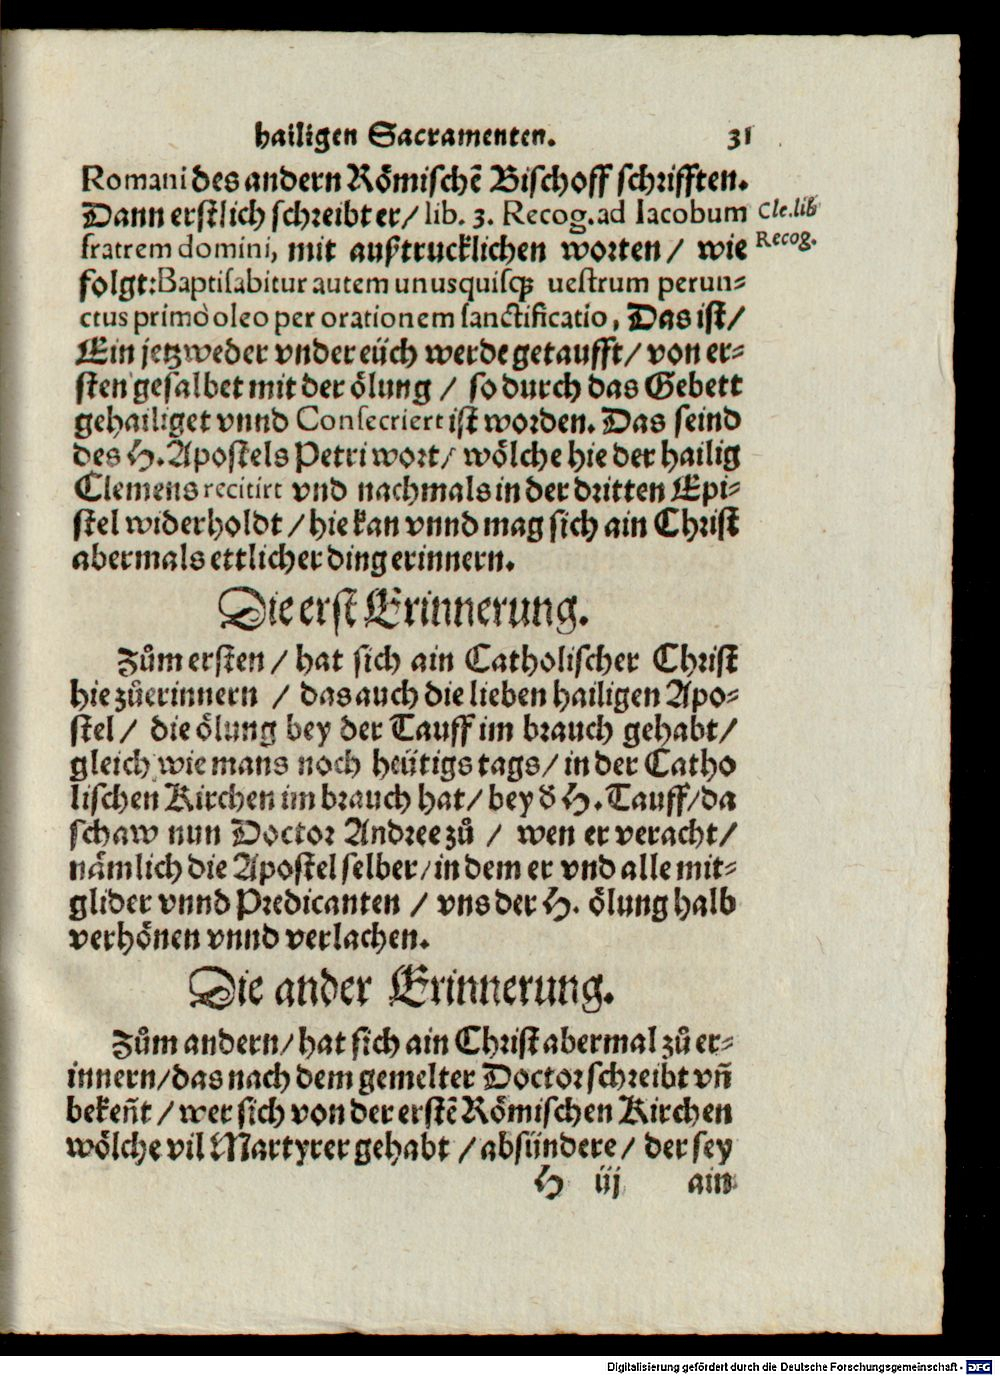 hailigen Sacramenten. 31
Romani des andern Römischẽ Bischoff schrifften.
Dann erstlich schreibt er / lib. 3. Recog. ad Iacobum
fratrem domini, mit auſtrucklichen worten / wie
Cle. lib
Recog.
folgt: Baptisabitur autem unusquisqꝫ uestrum perun⸗
ctus primò oleo per orationem sanctificatio, Das ist /
Ein jetzweder vnder eüch werde getaufft / von er⸗
sten gesalbet mit der ölung / so durch das Gebett
gehailiget vnnd Consecriert ist worden. Das seind
des H. Apostels Petri wort / wölche hie der hailig
Clemens recitirt vnd nachmals in der dritten Epi⸗
stel widerholdt / hie kan vnnd mag sich ain Christ
abermals ettlicher ding erinnern.
Die erst Erinnerung.
Zům ersten / hat sich ain Catholischer Christ
hie zů erinnern / das auch die lieben hailigen Apo⸗
stel / die ölung bey der Tauff im brauch gehabt /
gleich wie mans noch heütigs tags / in der Catho
lischen Kirchen im brauch hat / bey d̕ H. Tauff / da
schaw nun Doctor Andree zů / wen er veracht /
nämlich die Apostel selber / in dem er vnd alle mit⸗
glider vnnd Predicanten / vns der H. ölung halb
verhönen vnnd verlachen.
Die ander Erinnerung.
Zům andern / hat sich ain Christ abermal zů er⸗
innern / das nach dem gemelter Doctor schreibt vñ
bekeñt / wer sich von der erstẽ Römischen Kirchen
wölche vil Martyrer gehabt / absündere / der sey
H iij ain
Digitalisierung gefördert durch die Deutsche Forschungsgemeinschaft - DFG